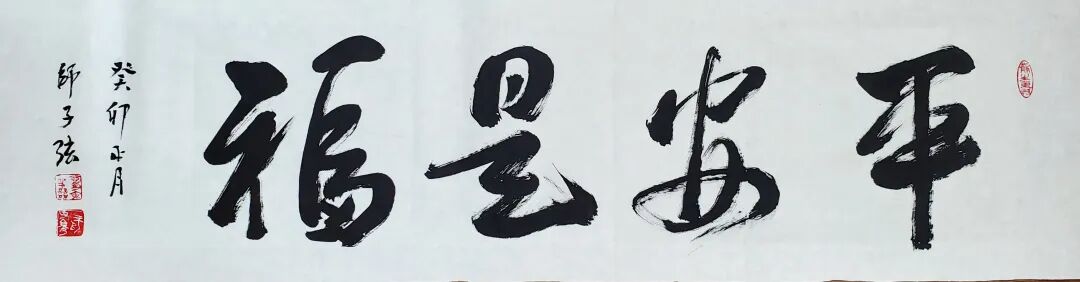 平安是福
癸卯正月
师子弦